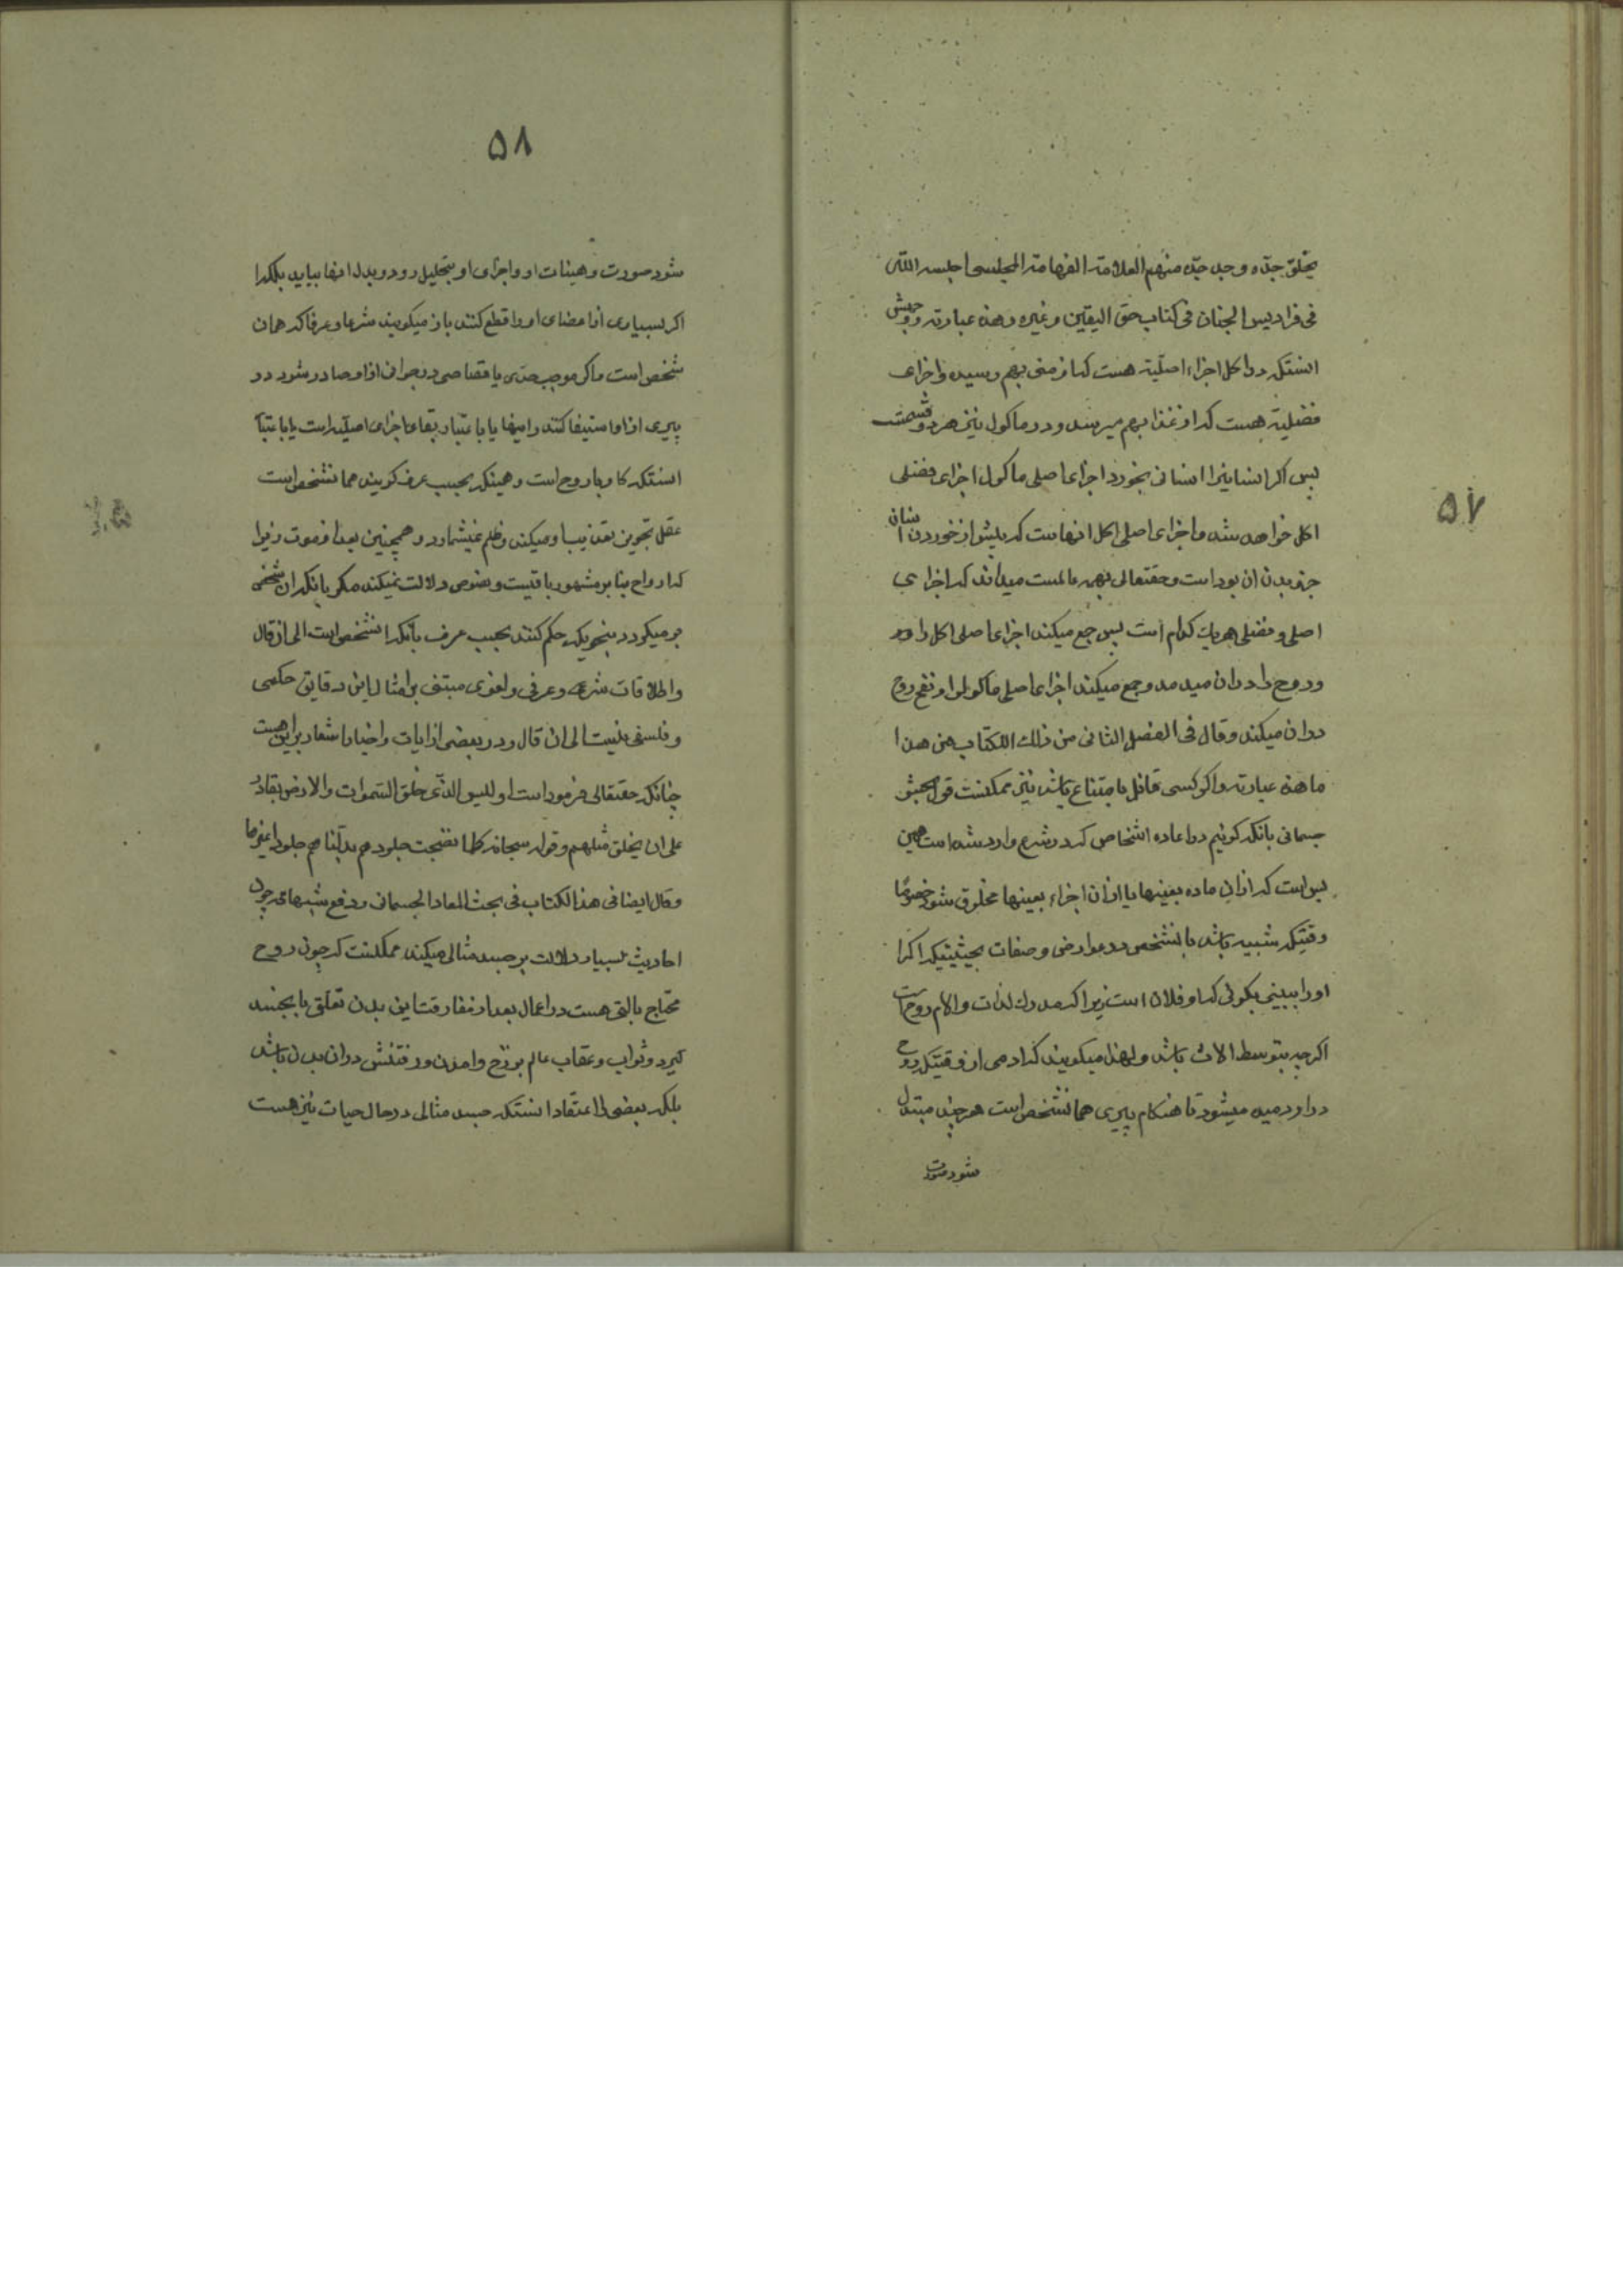 یخلق جدّه وجد جدّه منهم العلامة الفهامة المجلسی اجلسه اللّه
فی فرادیس الجنان فی کتاب حق الیقین و غیره و هذه عبارته و وجهش
انستکه در اکل اجزاء اصلیّه هست که از منی بهم رسیده و اجزای
فضلیّه هست که از غذا بهم میرسد و در ماکول نیز هر دو قسمت
پس اکر انسانیرا انسانی بخورد اجزای اصلی ماکول اجزای فضلی
اکل خواهد شد و اجزای اصلی اکل انهاست که پیش از خوردن انسان
جزو بدن ان بود است و حقتعالی بهمه عالمست میداند که اجزای
اصلی و فضلی هریك کدام است پس جمع میکند اجزای اصلی اکل را و
و روح را در ان میدمد و جمع میکند اجزای اصلی ماکول را و نفخ روح
در ان میکند و قال فی الفصل الثانی من ذلك الکتاب من هذا
ما هذه عبارته و اکر کسی قائل بامتناع باشد نیز ممکنست قول بحشر
جسمانی بانکه کوئیم در اعاده اشخاص که در شرع وارد شده است همین
بس است که از ان ماده بعینها یا از ان اجزاء بعینها مخلوق شود خصوصًا
وقتیکه شبیه باشد بانشخص در عوارض و صفات بحیثیتیکه اکر
او را ببینی بکوئی که او فلان است زیرا که مدرك لذات و الام روح است
اکرچه بتوسط الات باشد و لهذا میکویند که ادمی از وقتیکه روح
در او دمیده میشود تا هنکام پیری همانشخص است هر چند متبدل
شود صورت
۵۷
۵۸
شود صورت و هیئات او و اجزای او بتحلیل رود و بدل انها بیاید بلکه
اکر بسیاری از اعضای او را قطع کنند باز میکویند شرعا و عرفا که همان
شخص است و اکر موجب حدّی یا قصاصی در جوانی از او صادر شود در
پیری از او استیفا کنند و اینها یا باعتبار بقاء اجزای اصلیّه است یا باعتبار
انستکه کار وبار روح است و همینکه بحسب عرف کویند همانشخص است
عقل تجویز تعذیب او میکند و ظلم نمیشمارد و همچنین بعد از موت زیرا
که ارواح بنابر مشهور باقیست و نصوص دلالت نمیکند مکر بانکه ان شخص
برمیکردد بنحویکه حکم کنند بحسب عرف بانکه انشخص است الی ان قال
و اطلاقات شرعی و عرفی و لغوی مبتنی بر امثال این دقایق حکمی
و فلسفی نیست الی ان قال و در بعضی از ایات و اخبار اشعار براین هست
چنانکه حقتعالی فرموداست او لیس الذّی خلق السّموات والارض بقادر
علی ان یخلق مثلهم و قوله سبحانه کلما نضجت جلودهم بدّلناهم جلودا غیرها
وقال ایضا فی هذا الکتاب فی بحث المعاد الجسمانی و دفع شبهاته چون
احادیث بسیار دلالت بر جسد مثالی میکند ممکنست که چون روح
محتاج بالتی هست در اعمال بعد از مفارقت این بدن تعلّق بانجسد
کیرد و ثواب و عقاب عالم برزخ و امدن و رفتنش در ان بدن باشد
بلکه بعضی را اعتقاد انستکه جسد مثالی در حال حیات نیز هست